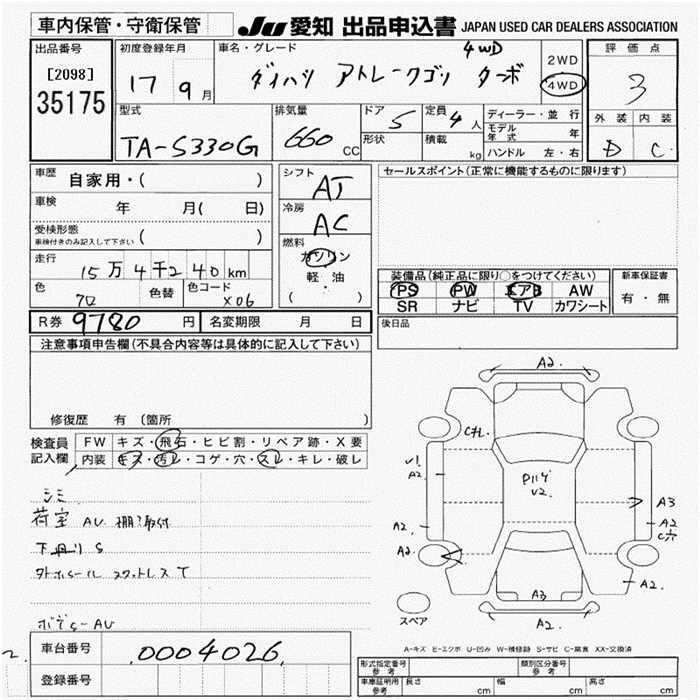 車内保管・守衛保管
JU 愛知 出品申込書 JAPAN USED CAR DEALERS ASSOCIATION
出品番号
[2098]
35175
初度登録年月
17 9月
車名・グレード
4WD
ダイハツ アトレークゴン ターボ
2WD
4WD
評価点
3
外装 内装
D C
型式
TA-S330G
排気量
660 CC
ドア 5
形状
定員 4人
積載 kg
ディーラー・並行
モデル年式 年
ハンドル 左・右
車歴
自家用・( )
車検
年 月( 日)
受検形態
車検付きのみ記入して下さい ( )
走行
15万4千240km
色
クロ
色替
色コード
X06
シフト
AT
冷房
AC
燃料
ガソリン
軽・油
( ・ )
セールスポイント(正常に機能するものに限ります)
装備品(純正品に限り○をつけてください)
PS PW エアB AW
SR ナビ TV カワシート
新車保証書
有・無
R券 9780円
名変期限 月 日
後日品
注意事項申告欄(不具合内容等は具体的に記入して下さい)
修復歴 有 (箇所 )
検査員
記入欄
FW キズ・飛石・ヒビ割・リペア跡・X要
内装 キズ・汚レ・コゲ・穴・スレ・キレ・破レ
シミ
荷室 AU 棚取付
下廻り S
タイホイール スタットレス T
ボデーS AU
A2.
Cホル
V1
A2
P11イ
V2
A3
A2.
A2
C穴
A2
A3
A2.
A2.
スペア
A-キズ E-エクボ U-凹み W-補修跡 S-サビ C-腐食 XX-交換済
2.
車台番号
.0004026.
登録番号
形式指定番号
参考
類別区分番号
参考
車庫証明用
参考
長さ cm
幅 cm
高さ cm